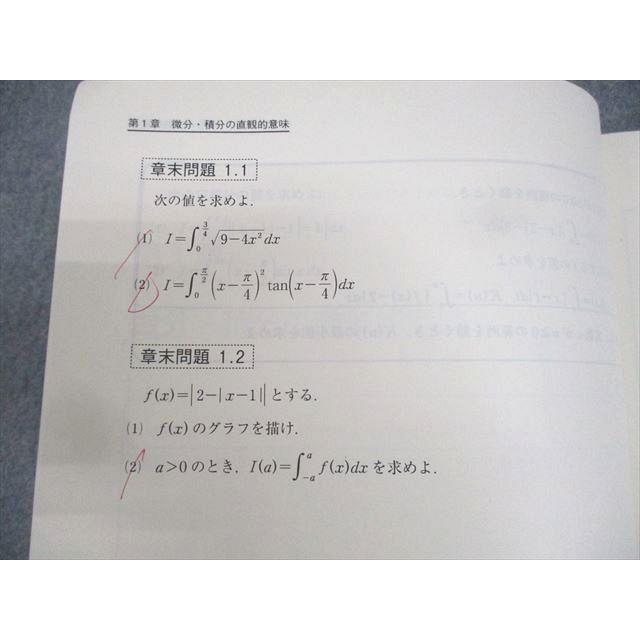 第1章 微分・積分の直観的意味
章末問題 1.1
次の値を求めよ.
(1) I=∫₀^{3/4} √(9−4x²) dx
(2) I=∫₀^{π/2} (x−π/4)² tan(x−π/4) dx
章末問題 1.2
f(x)=|2−|x−1||とする.
(1) f(x)のグラフを描け.
(2) a>0のとき, I(a)=∫_{−a}^{a} f(x)dxを求めよ.